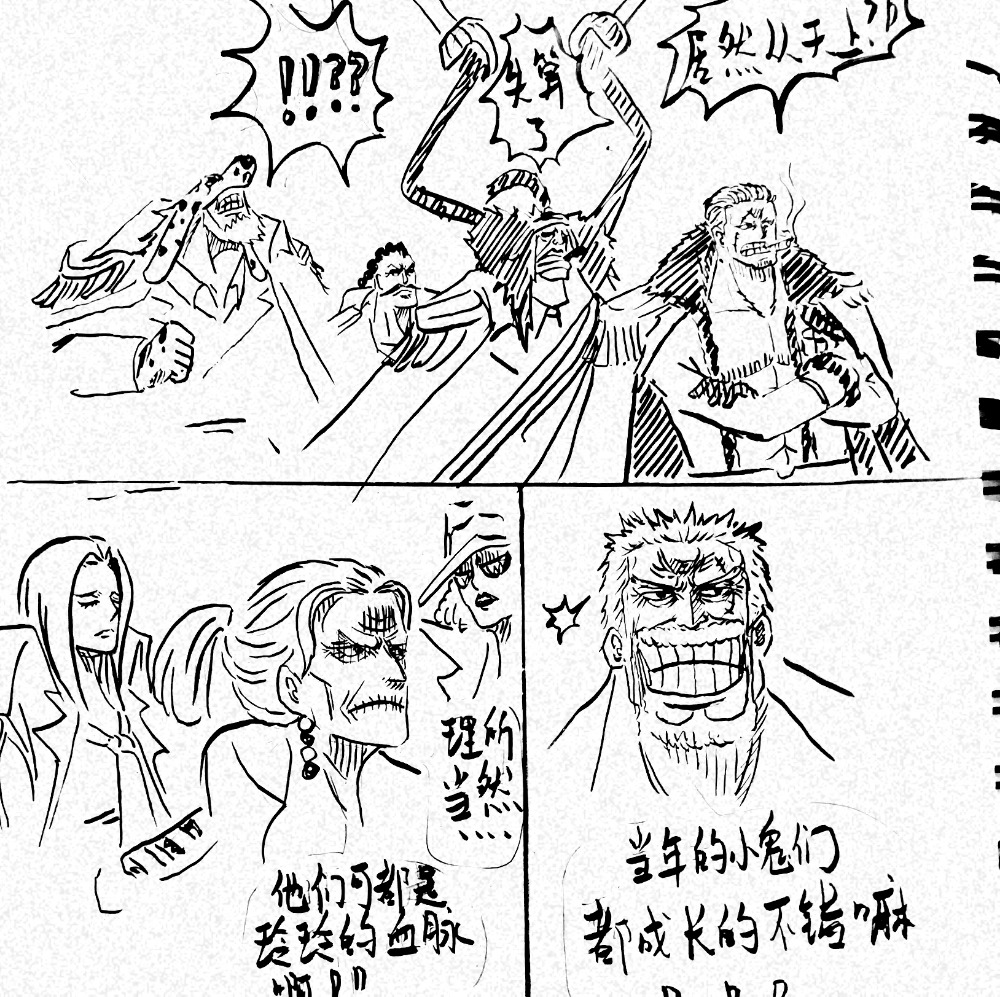 !!??
失算
了
居然从手上?!
理所
当然
····
他们可都是
玲玲的血脉
啊!!!
当年的小鬼们
都成长的不错嘛